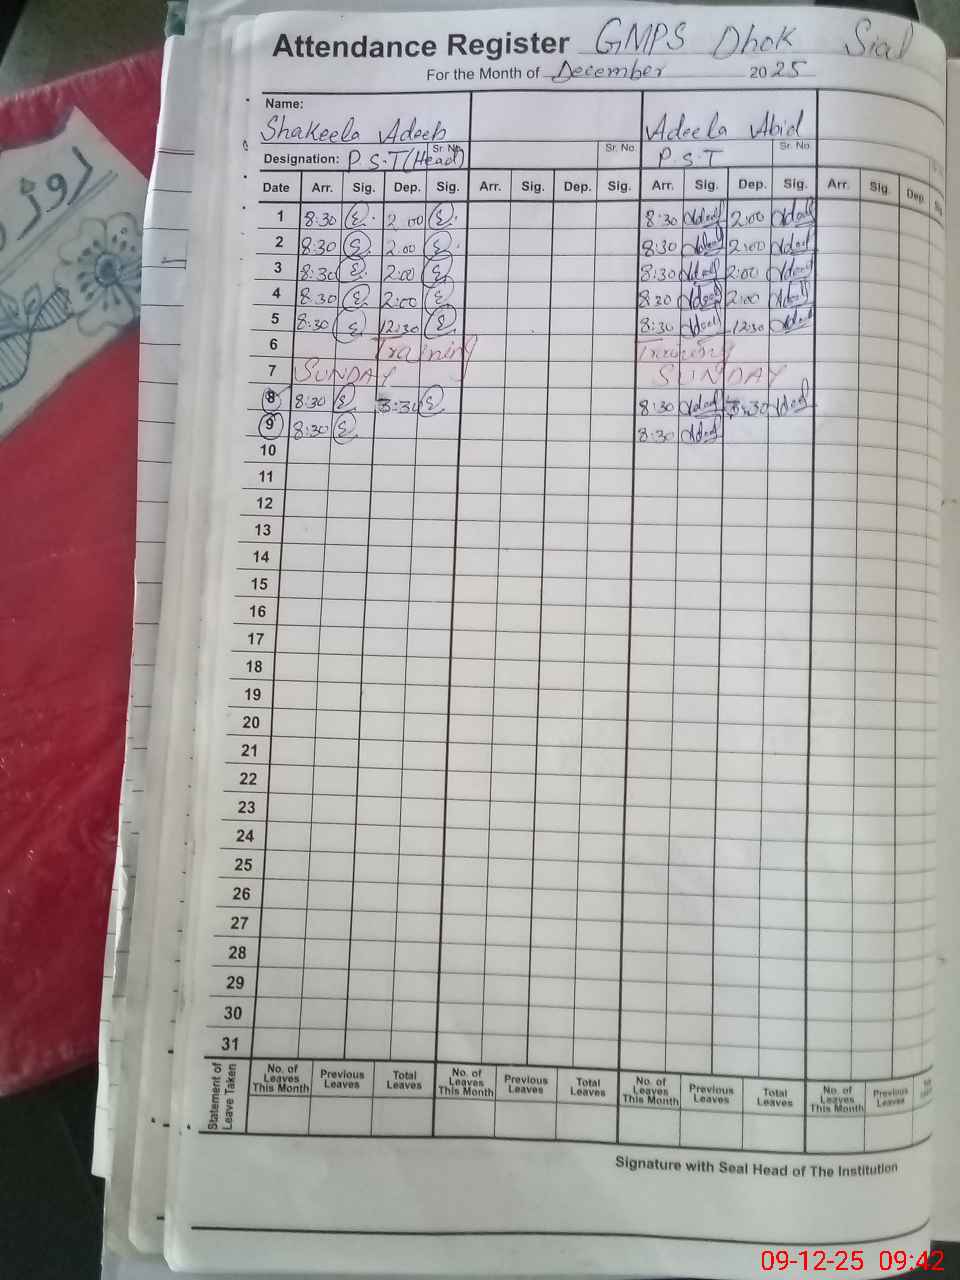 Attendance Register GMPS Dhok Sial
For the Month of December 2025
Name:
Shakeela Adeeb Adeela Abid
Designation: P.S.T (Head) Sr. No. Sr. No. P.S.T Sr. No.
Date Arr. Sig. Dep. Sig. Arr. Sig. Dep. Sig. Arr. Sig. Dep. Sig. Arr. Sig. Dep.
1 8:30 2:00 8:30 2:00
2 8:30 2:00 8:30 2:00
3 8:30 2:00 8:30 2:00
4 8:30 2:00 8:30 2:00
5 8:30 12:30 8:30 12:30
6 Training Training
7 SUNDAY SUNDAY
8 8:30 3:30 8:30 3:30
9 8:30 8:30
10
11
12
13
14
15
16
17
18
19
20
21
22
23
24
25
26
27
28
29
30
31
Statement of Leave Taken
No. of Leaves This Month Previous Leaves Total Leaves No. of Leaves This Month Previous Leaves Total Leaves No. of Leaves This Month Previous Leaves Total Leaves No. of Leaves This Month Previous Leaves
Signature with Seal Head of The Institution
09-12-25 09:42